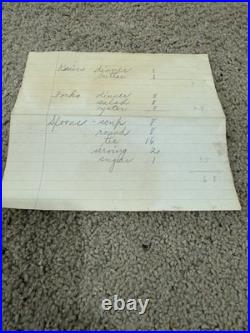 Knives dinner 1
butter 1
Forks dinner 8
salad 8
oyster 8
Spoons - soup 8
round 8
tea 16
serving 2
sugar 1
68